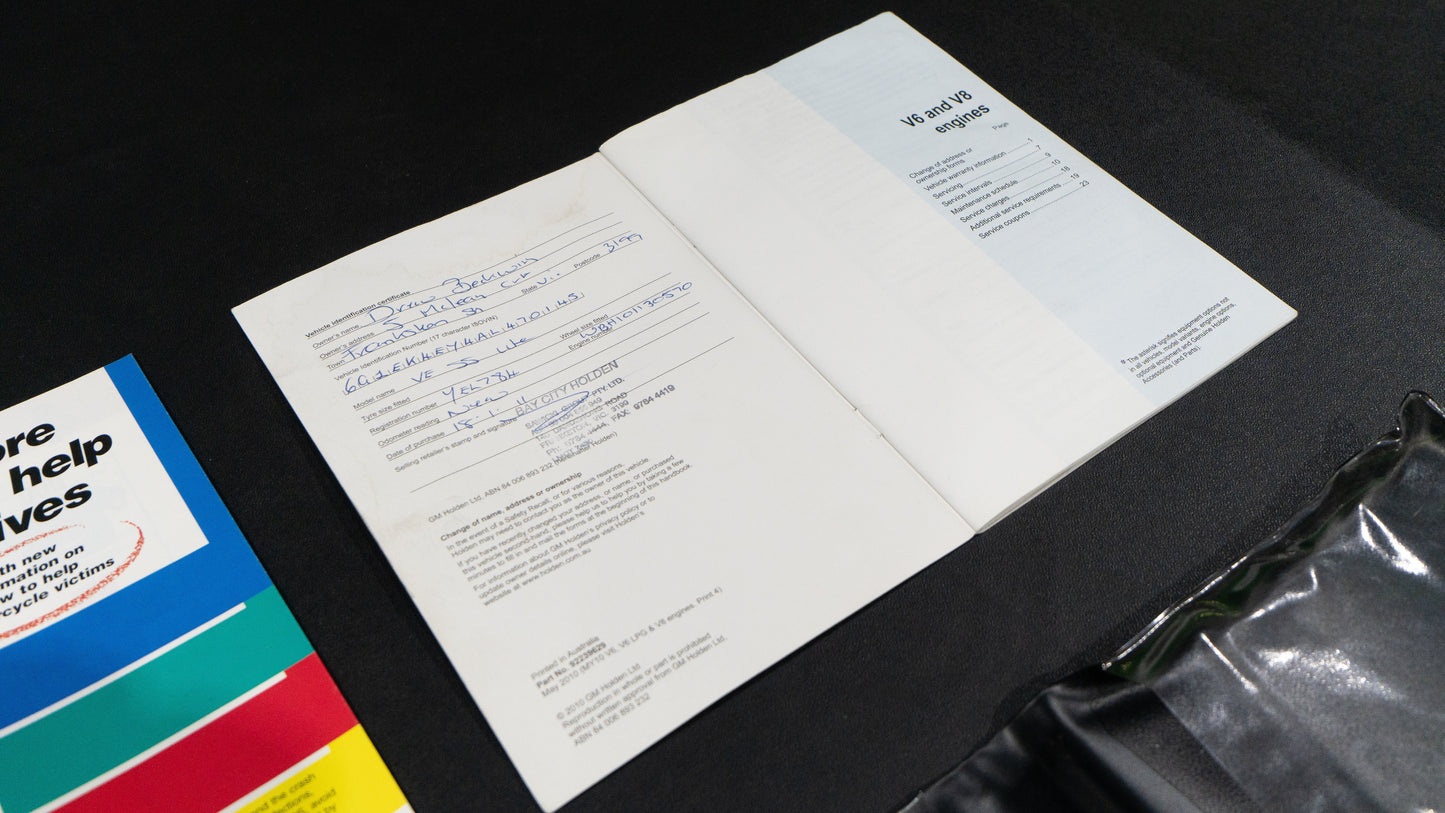 Vehicle identification certificate
Owner's name Drew Beckwith
Owner's address 5 McLean Crt
Town Frankston Sth State Vic Postcode 3199
Vehicle Identification Number (17 character ISOVIN)
Model name VE SS Ute Wheel size fitted
Tyre size fitted Engine number
Registration number YEL784
Odometer reading New
Date of purchase 18.1.11
Selling retailer's stamp and signature
BAY CITY HOLDEN
PTY. LTD.
ROAD
VIC. 3199
FAX: 9784 4419
GM Holden Ltd. ABN 84 006 893 232 (hereinafter Holden)
Change of name, address or ownership
In the event of a Safety Recall, or for various reasons,
Holden may need to contact you as the owner of this vehicle.
If you have recently changed your address, or name, or purchased
this vehicle second-hand, please help us to help you by taking a few
minutes to fill in and mail the forms at the beginning of this handbook.
For information about GM Holden's privacy policy or to
update owner details online, please visit Holden's
website at www.holden.com.au
Printed in Australia
Part No. 92239629
May 2010 (MY10 V6, V6 LPG & V8 engines. Print 4)
© 2010 GM Holden Ltd
Reproduction in whole or part is prohibited
without written approval from GM Holden Ltd.
ABN 84 006 893 232
V6 and V8
engines
Page
Change of address or
ownership forms 1
Vehicle warranty information 7
Servicing 9
Service intervals 10
Maintenance schedule 18
Service charges 19
Additional service requirements 23
Service coupons
* The asterisk signifies equipment options not
in all vehicles, model variants, engine options,
optional equipment and Genuine Holden
Accessories (and Parts).
ore
help
ives
th new
rmation on
w to help
rcycle victims
nd the crash
ections,
avoid
by